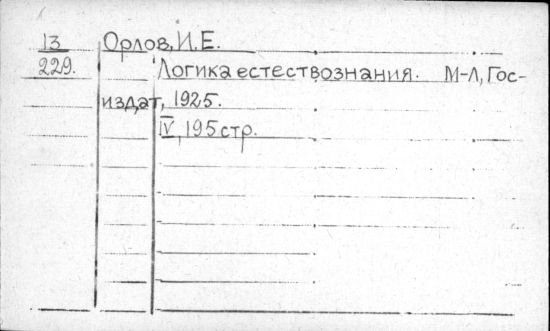 13 Орлов, И.Е.
229. Логика естествознания. М-Л, Гос-
издат, 1925.
IV, 195 стр.